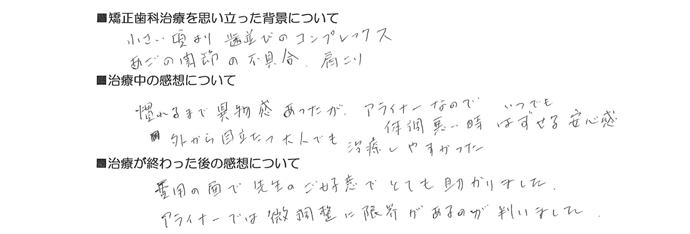 ■矯正歯科治療を思い立った背景について
小さい頃より 歯並びのコンプレックス
あごの関節の不具合、肩こり
■治療中の感想について
慣れるまで異物感あったが、アライナーなので いつでも
体調悪い時 はずせる 安心感
外から目立たつ大人でも 治療しやすかった
■治療が終わった後の感想について
費用の面で先生のご好意でとても助かりました。
アライナーでは微調整に限界があるのが判いました。